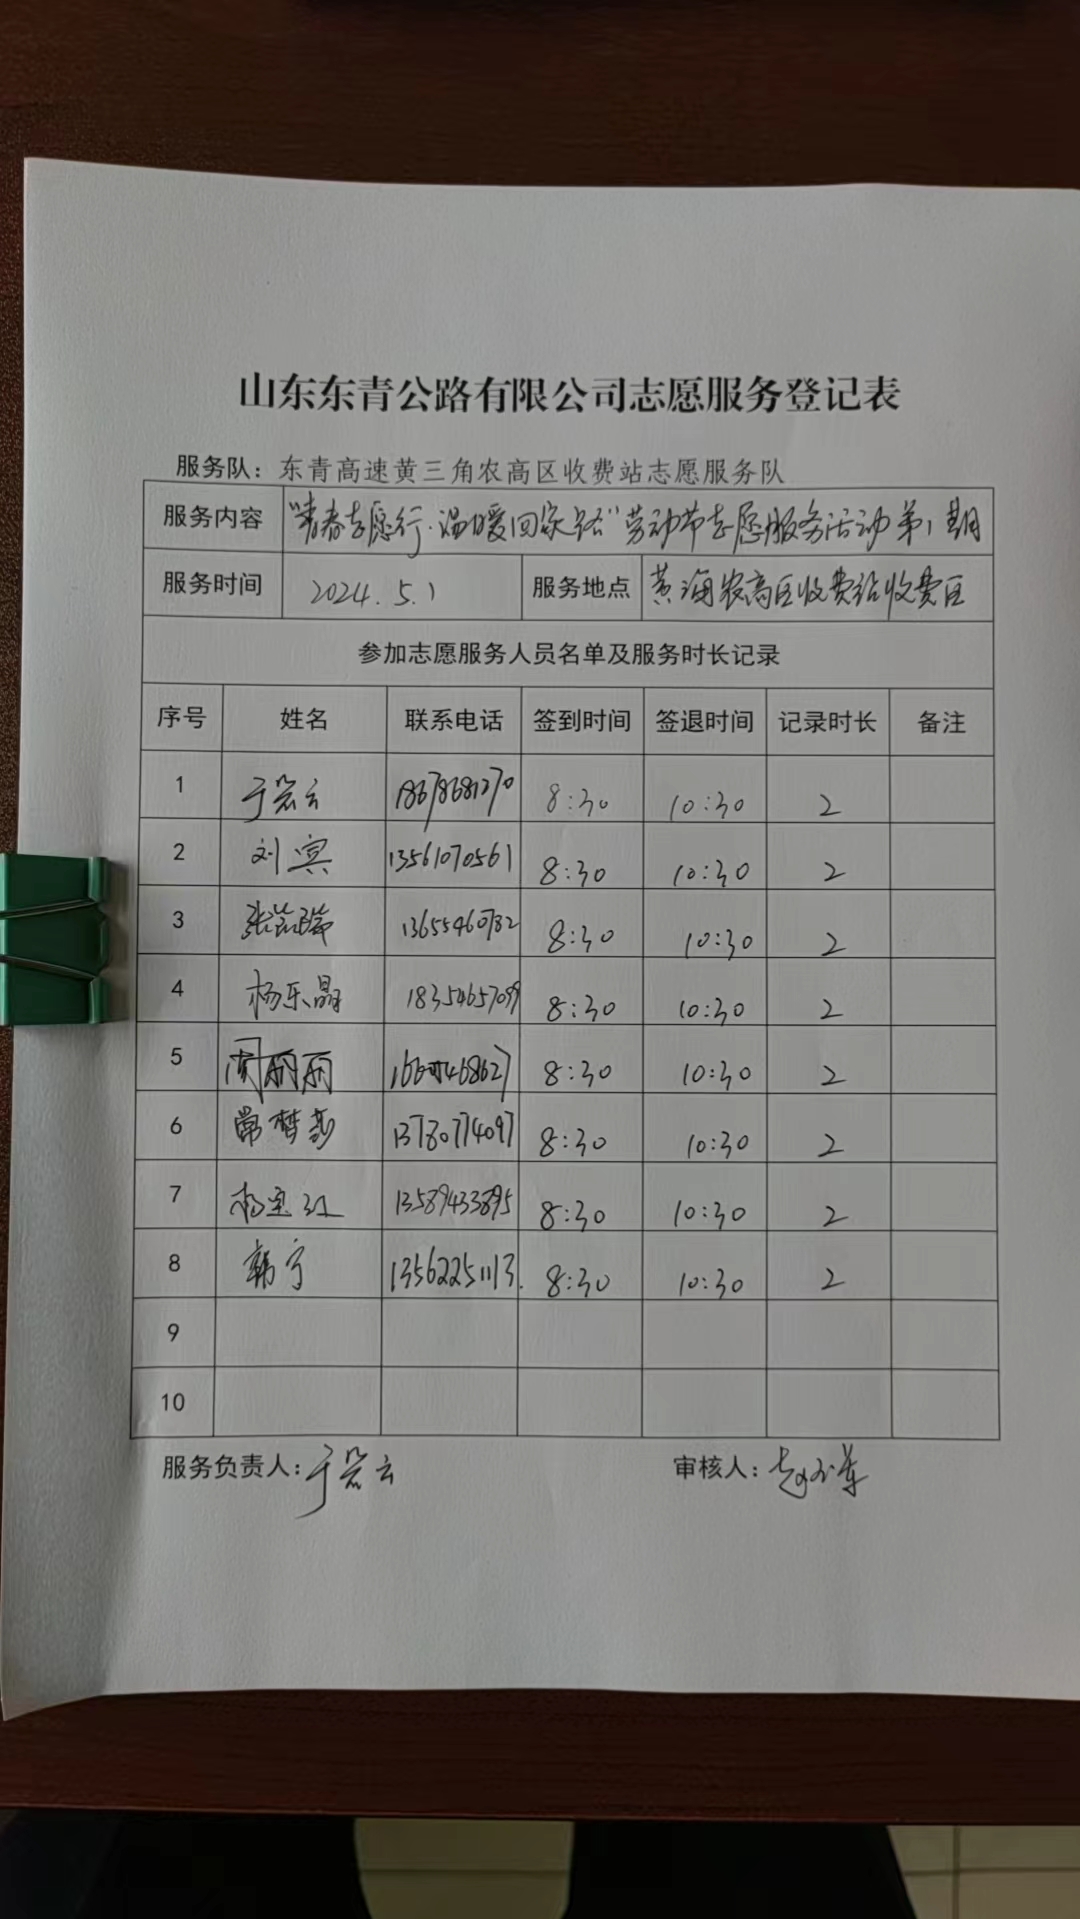 山东东青公路有限公司志愿服务登记表
服务队：东青高速黄三角农高区收费站志愿服务队
服务内容 "青春志愿行·温暖回家路"劳动节志愿服务活动第1期
服务时间 2024.5.1 服务地点 黄海农高区收费站收费区
参加志愿服务人员名单及服务时长记录
序号 姓名 联系电话 签到时间 签退时间 记录时长 备注
1 18678681270 8:30 10:30 2
2 刘宾 13561070561 8:30 10:30 2
3 13655460782 8:30 10:30 2
4 杨乐晶 18354657099 8:30 10:30 2
5 周丽丽 8:30 10:30 2
6 常梦莎 13780774097 8:30 10:30 2
7 杨宝红 13589433895 8:30 10:30 2
8 韩宁 13562251113. 8:30 10:30 2
9
10
服务负责人： 审核人：